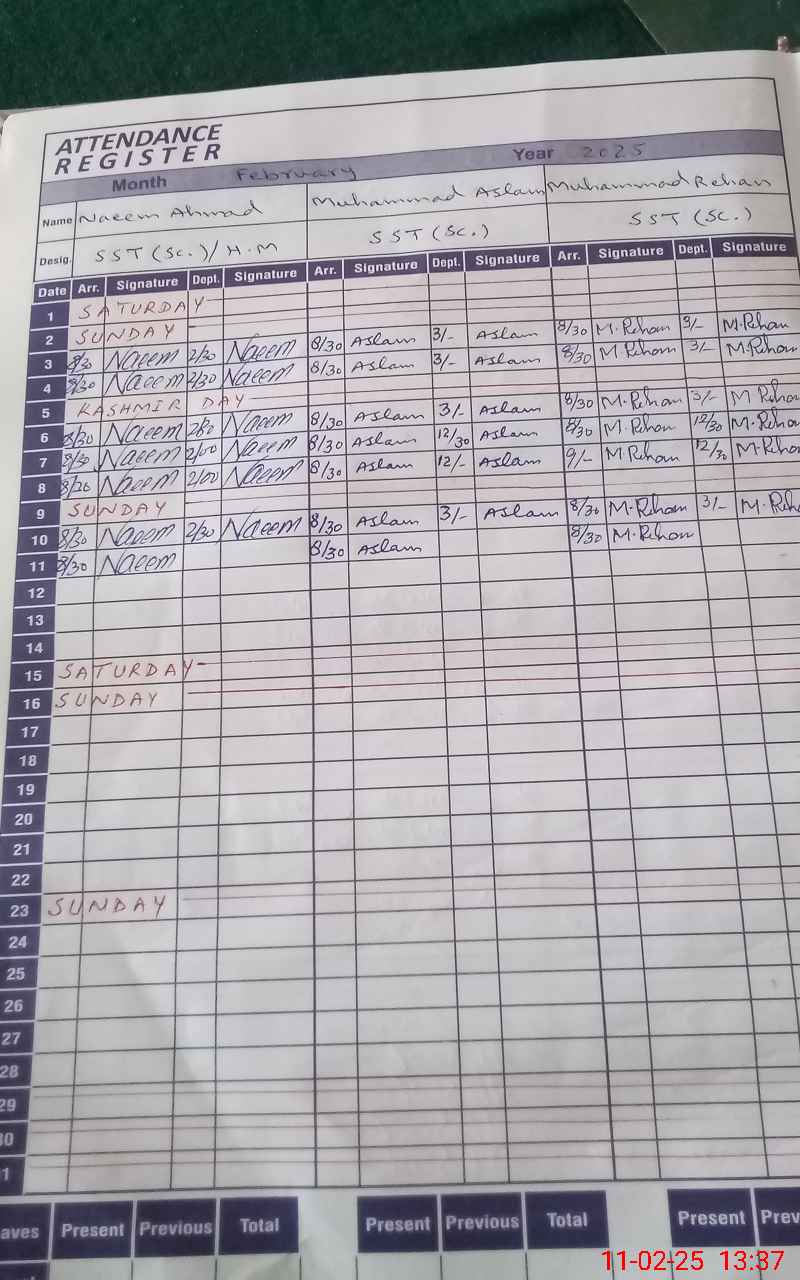 ATTENDANCE
REGISTER
Month February Year 2025
Name Naeem Ahmad Muhammad Aslam Muhammad Rehan
Desig. SST (Sc.)/H.M SST (Sc.) SST (Sc.)
Date Arr. Signature Dept. Signature Arr. Signature Dept. Signature Arr. Signature Dept. Signature
1 SATURDAY
2 SUNDAY
3 8/30 Naeem 2/30 Naeem 8/30 Aslam 3/- Aslam 8/30 M.Rehan 3/- M.Rehan
4 8/30 Naeem 2/30 Naeem 8/30 Aslam 3/- Aslam 8/30 M.Rehan 3/- M.Rehan
5 KASHMIR DAY
6 8/30 Naeem Naeem 8/30 Aslam 3/- Aslam 8/30 M.Rehan 3/- M Rehan
7 8/30 Naeem 2/00 Naeem 8/30 Aslam 12/30 Aslam 8/30 M.Rehan 12/30 M.Rehan
8 8/20 Naeem 2/00 Naeem 8/30 Aslam 12/- Aslam 9/- M.Rehan 12/30 M.Reha
9 SUNDAY
10 8/30 Naeem 2/30 Naeem 8/30 Aslam 3/- Aslam 8/30 M.Rehan 3/- M.Reha
11 8/30 Naeem 8/30 Aslam 8/30 M.Rehan
12
13
14
15 SATURDAY
16 SUNDAY
17
18
19
20
21
22
23 SUNDAY
24
25
26
27
28
29
30
1
aves Present Previous Total Present Previous Total Present Prev
11-02-25 13:37